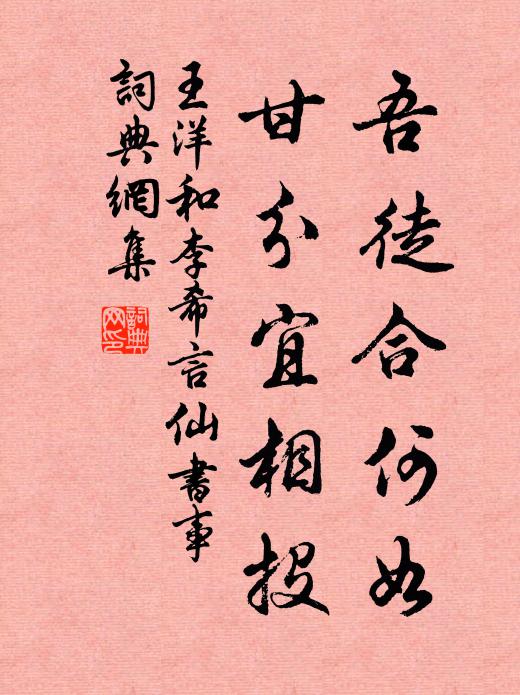 吾徒合何如
甘分宜相投
王洋和李希言仙書事
詞典網集
詞典網印